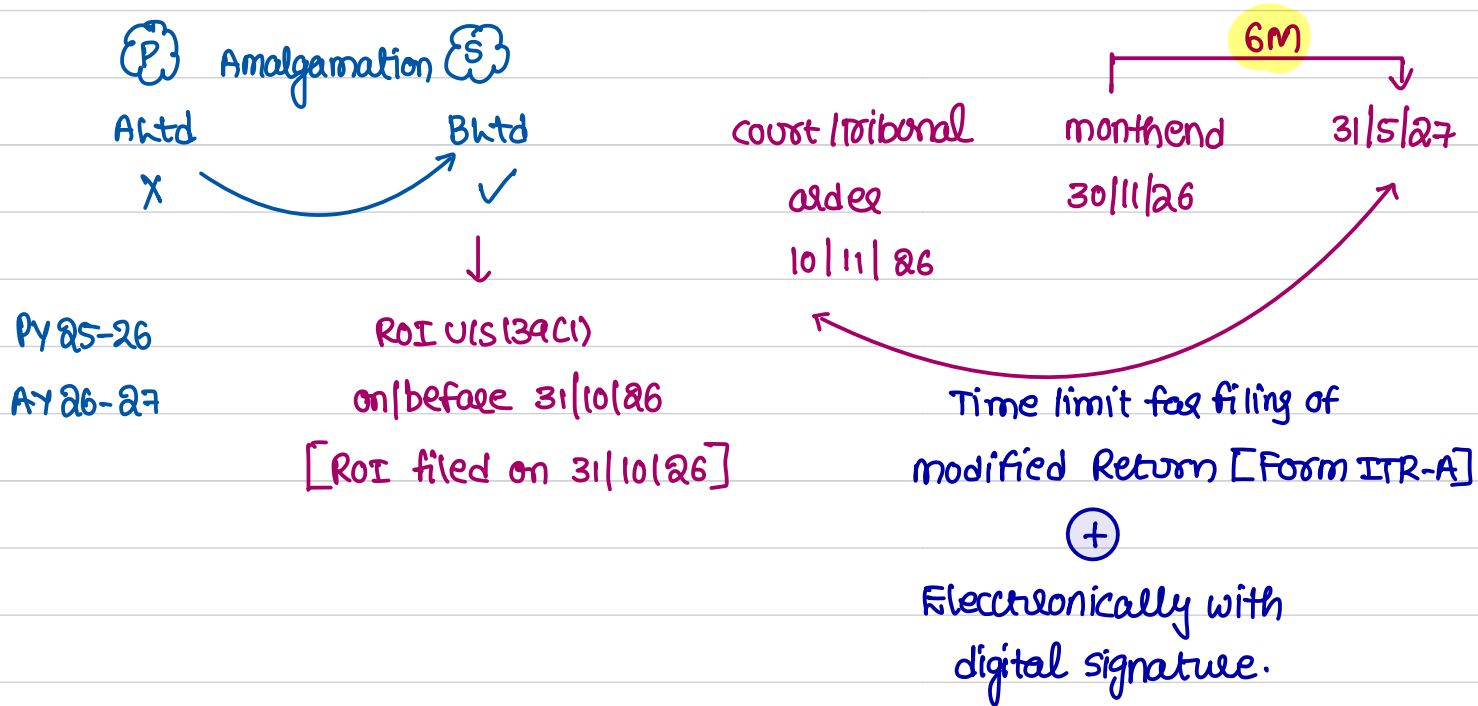 P Amalgamation S
A Ltd B Ltd
X ✓
PY 25-26
AY 26-27
ROI U/S 139(1)
on/before 31/10/26
[ROI filed on 31/10/26]
6M
court/Tribunal monthend 31/5/27
order 30/11/26
10/11/26
Time limit for filing of
modified Return [Form ITR-A]
+
Electronically with
digital signature.